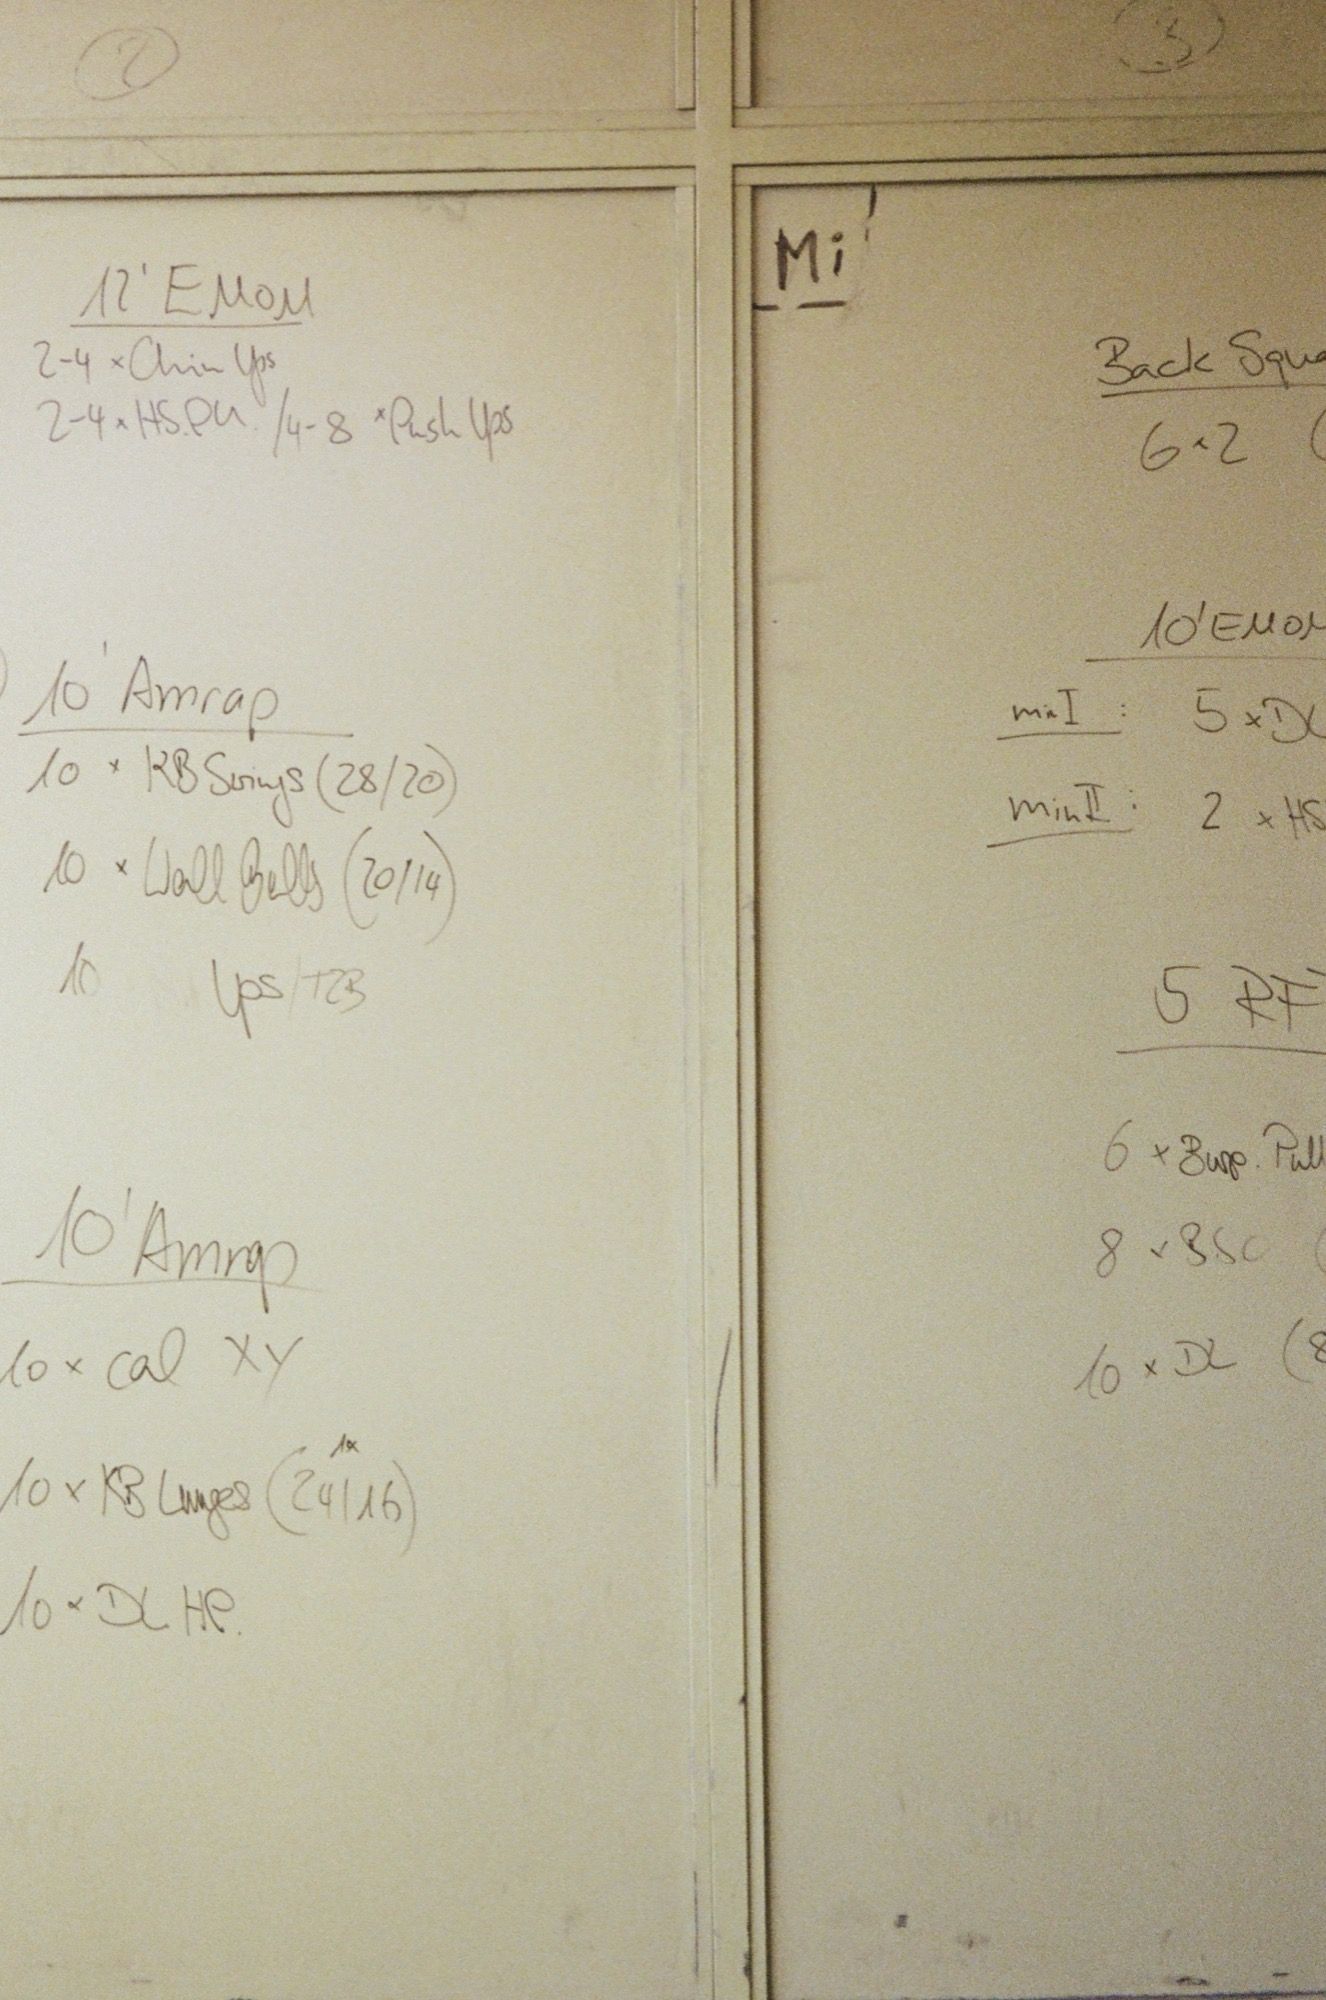 2
12' EMOM
2-4 × Chin Ups
2-4 × HS.PU. / 4-8 × Push Ups
10' Amrap
10 × KB Swings (28/20)
10 × Wall Balls (20/14)
10 Ups/T2B
10' Amrap
10 × cal XY
1x
10 × KB Lunges (24/16)
10 × DL HP.
3
Mi
Back Squa
6×2 (
10' EMOM
min I : 5 × DL
min II : 2 × HS
5 RFT
6 × Burp. Pull
8 × BSC (
10 × DL (8